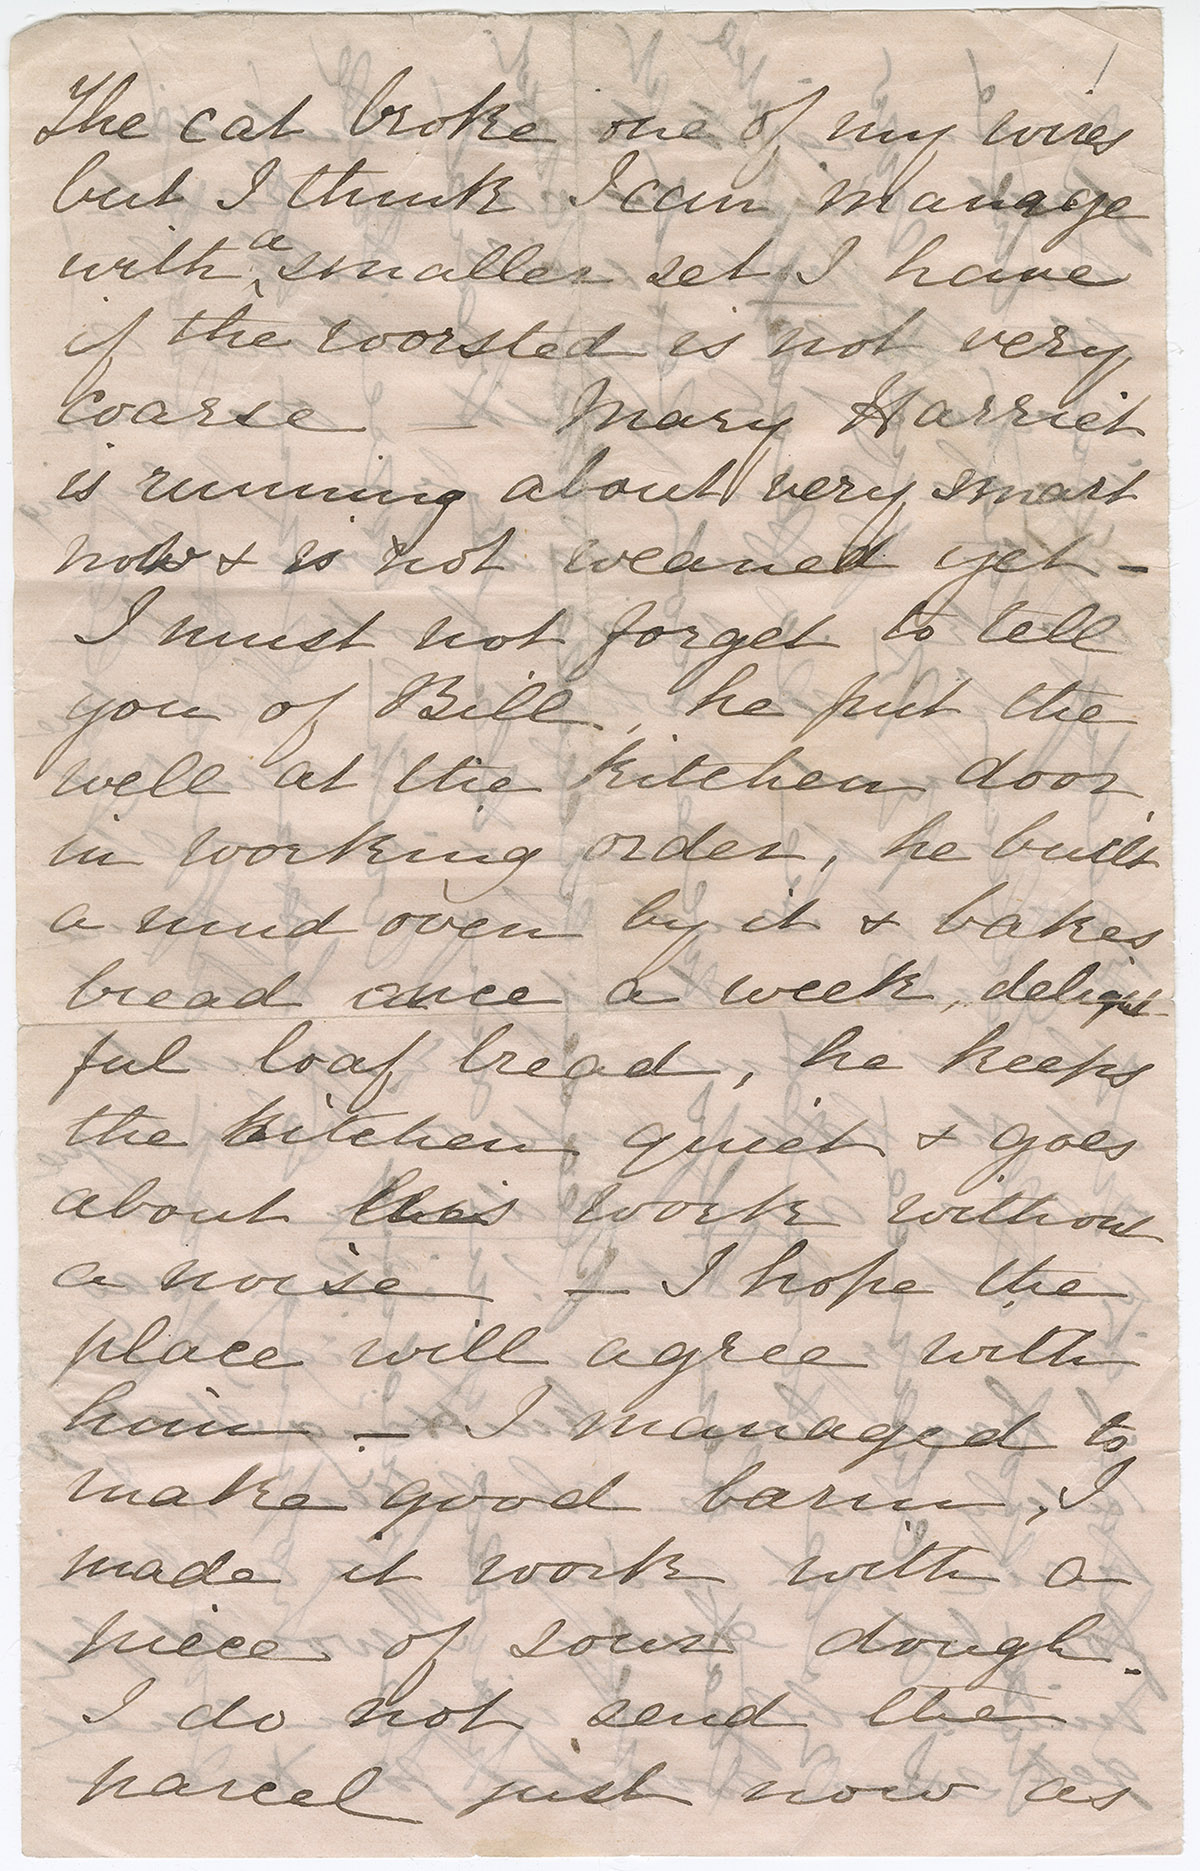 The cat broke one of my wires
but I think I can manage
with a smaller set I have
if the worsted is not very
coarse – Mary Harriet
is running about very smart
now & is not weaned yet –
I must not forget to tell
you of Bill, he put the
well at the kitchen door
in working order, he built
a mud oven by it & bakes
bread once a week, delight-
ful loaf bread, he keeps
the kitchen quiet & goes
about his work without
a noise – I hope the
place will agree with
him – I managed to
make good barm, I
made it work with a
piece of sour dough.
I do not send the
parcel just now as